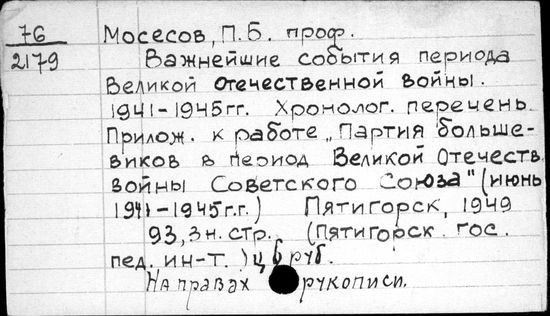 76
2179
Мосесов, П.Б. проф.
Важнейшие события периода
Великой Отечественной войны.
1941-1945гг. Хронолог. перечень.
Прилож. к работе „Партия больше-
виков в период Великой Отечеств.
войны Советского Союза" (июнь
1941-1945г.г.) Пятигорск, 1949
93, 3 н. стр. (Пятигорск. гос.
пед. ин-т.) ц 6 руб.
На правах рукописи.